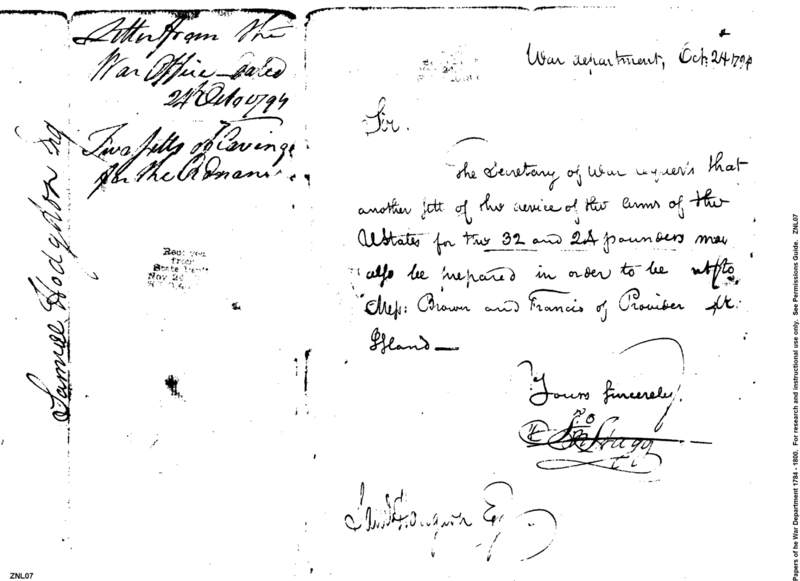 Letter from the
War Office dated
24th Oct 1794
Two setts of Carvings
for the Ordnance
Samuel Hodgdon Esq
Rec: ved
from
State Dept
Nov 24
War department, Oct. 24 1794
Sir.
The Secretary of War requests that
another sett of the device of the arms of the
UStates for the 32 and 24 pounders may
also be prepared in order to be sent to
Mess: Brown and Francis of Providence
Island —
Yours Sincerely.
Jn Stagg
Saml Hodgdon Esq
ZNL07
Papers of he War Department 1784 - 1800. For research and instructional use only. See Permissions Guide. ZNL07